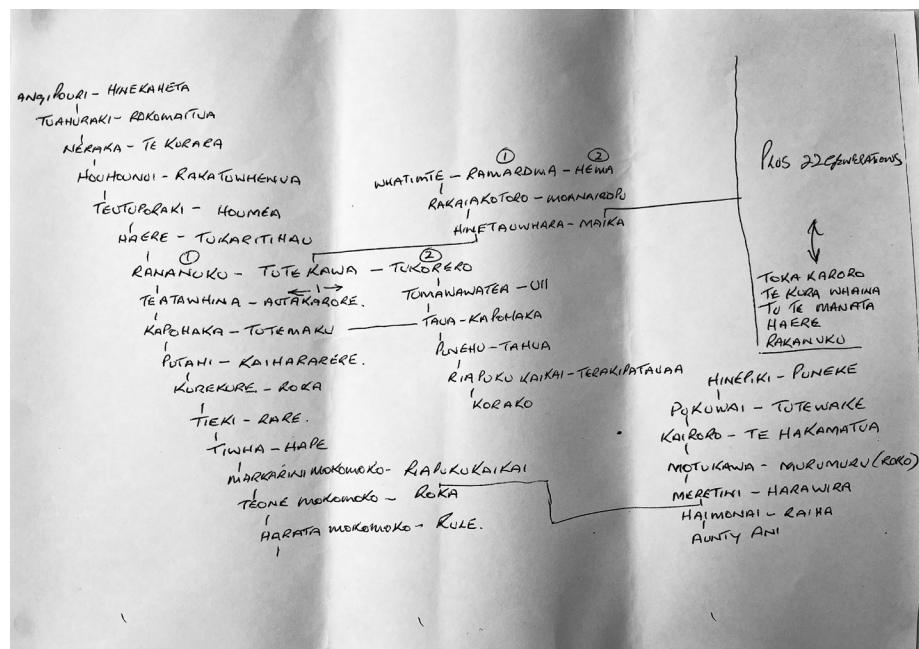 ANGIPOURI - HINEKAHETA
TUAHURAKI - ROKOMAITUA
NERAKA - TE KURARA
HOUHOUNUI - RAKATUWHENUA
TEUTUPORAKI - HOUMEA
HAERE - TUKARITIHAU
① ②
RANANUKU - TUTE KAWA - TUKORERO
TEATAWHINA - AUTAKARORE.
KAPOHAKA - TUTEMAKU
PUTANI - KAIHARARERE.
KUREKURE - ROKA
TIEKI - RARE.
TIWHA - HAPE
MARKARINI MOKOMOKO - RIAPUKUKAIKAI
TEONE MOKOMOKO - ROKA
HARATA MOKOMOKO - RULE.
① ②
WHATIMTE - RAMAROMA - HEMA
RAKAIAKOTORO - MOANAIROPU
HINETAUWHARA - MAIKA
TUMAWAWATEA - UII
TAUA - KAPOHAKA
PUNEHU - TAHUA
RIAPUKU KAIKAI - TERAKIPATAUAA
KORAKO
PLUS 22 GENERATIONS
TOKA KARORO
TE KURA WHAINA
TU TE MANATA
HAERE
RAKANUKU
HINEPIKI - PUNEKE
POKUWAI - TUTEWAIKE
KAIRORO - TE HAKAMATUA
MOTUKAWA - MURUMURU (ROKO)
MERETINI - HARAWIRA
HAIMONAI - RAIHA
AUNTY ANI